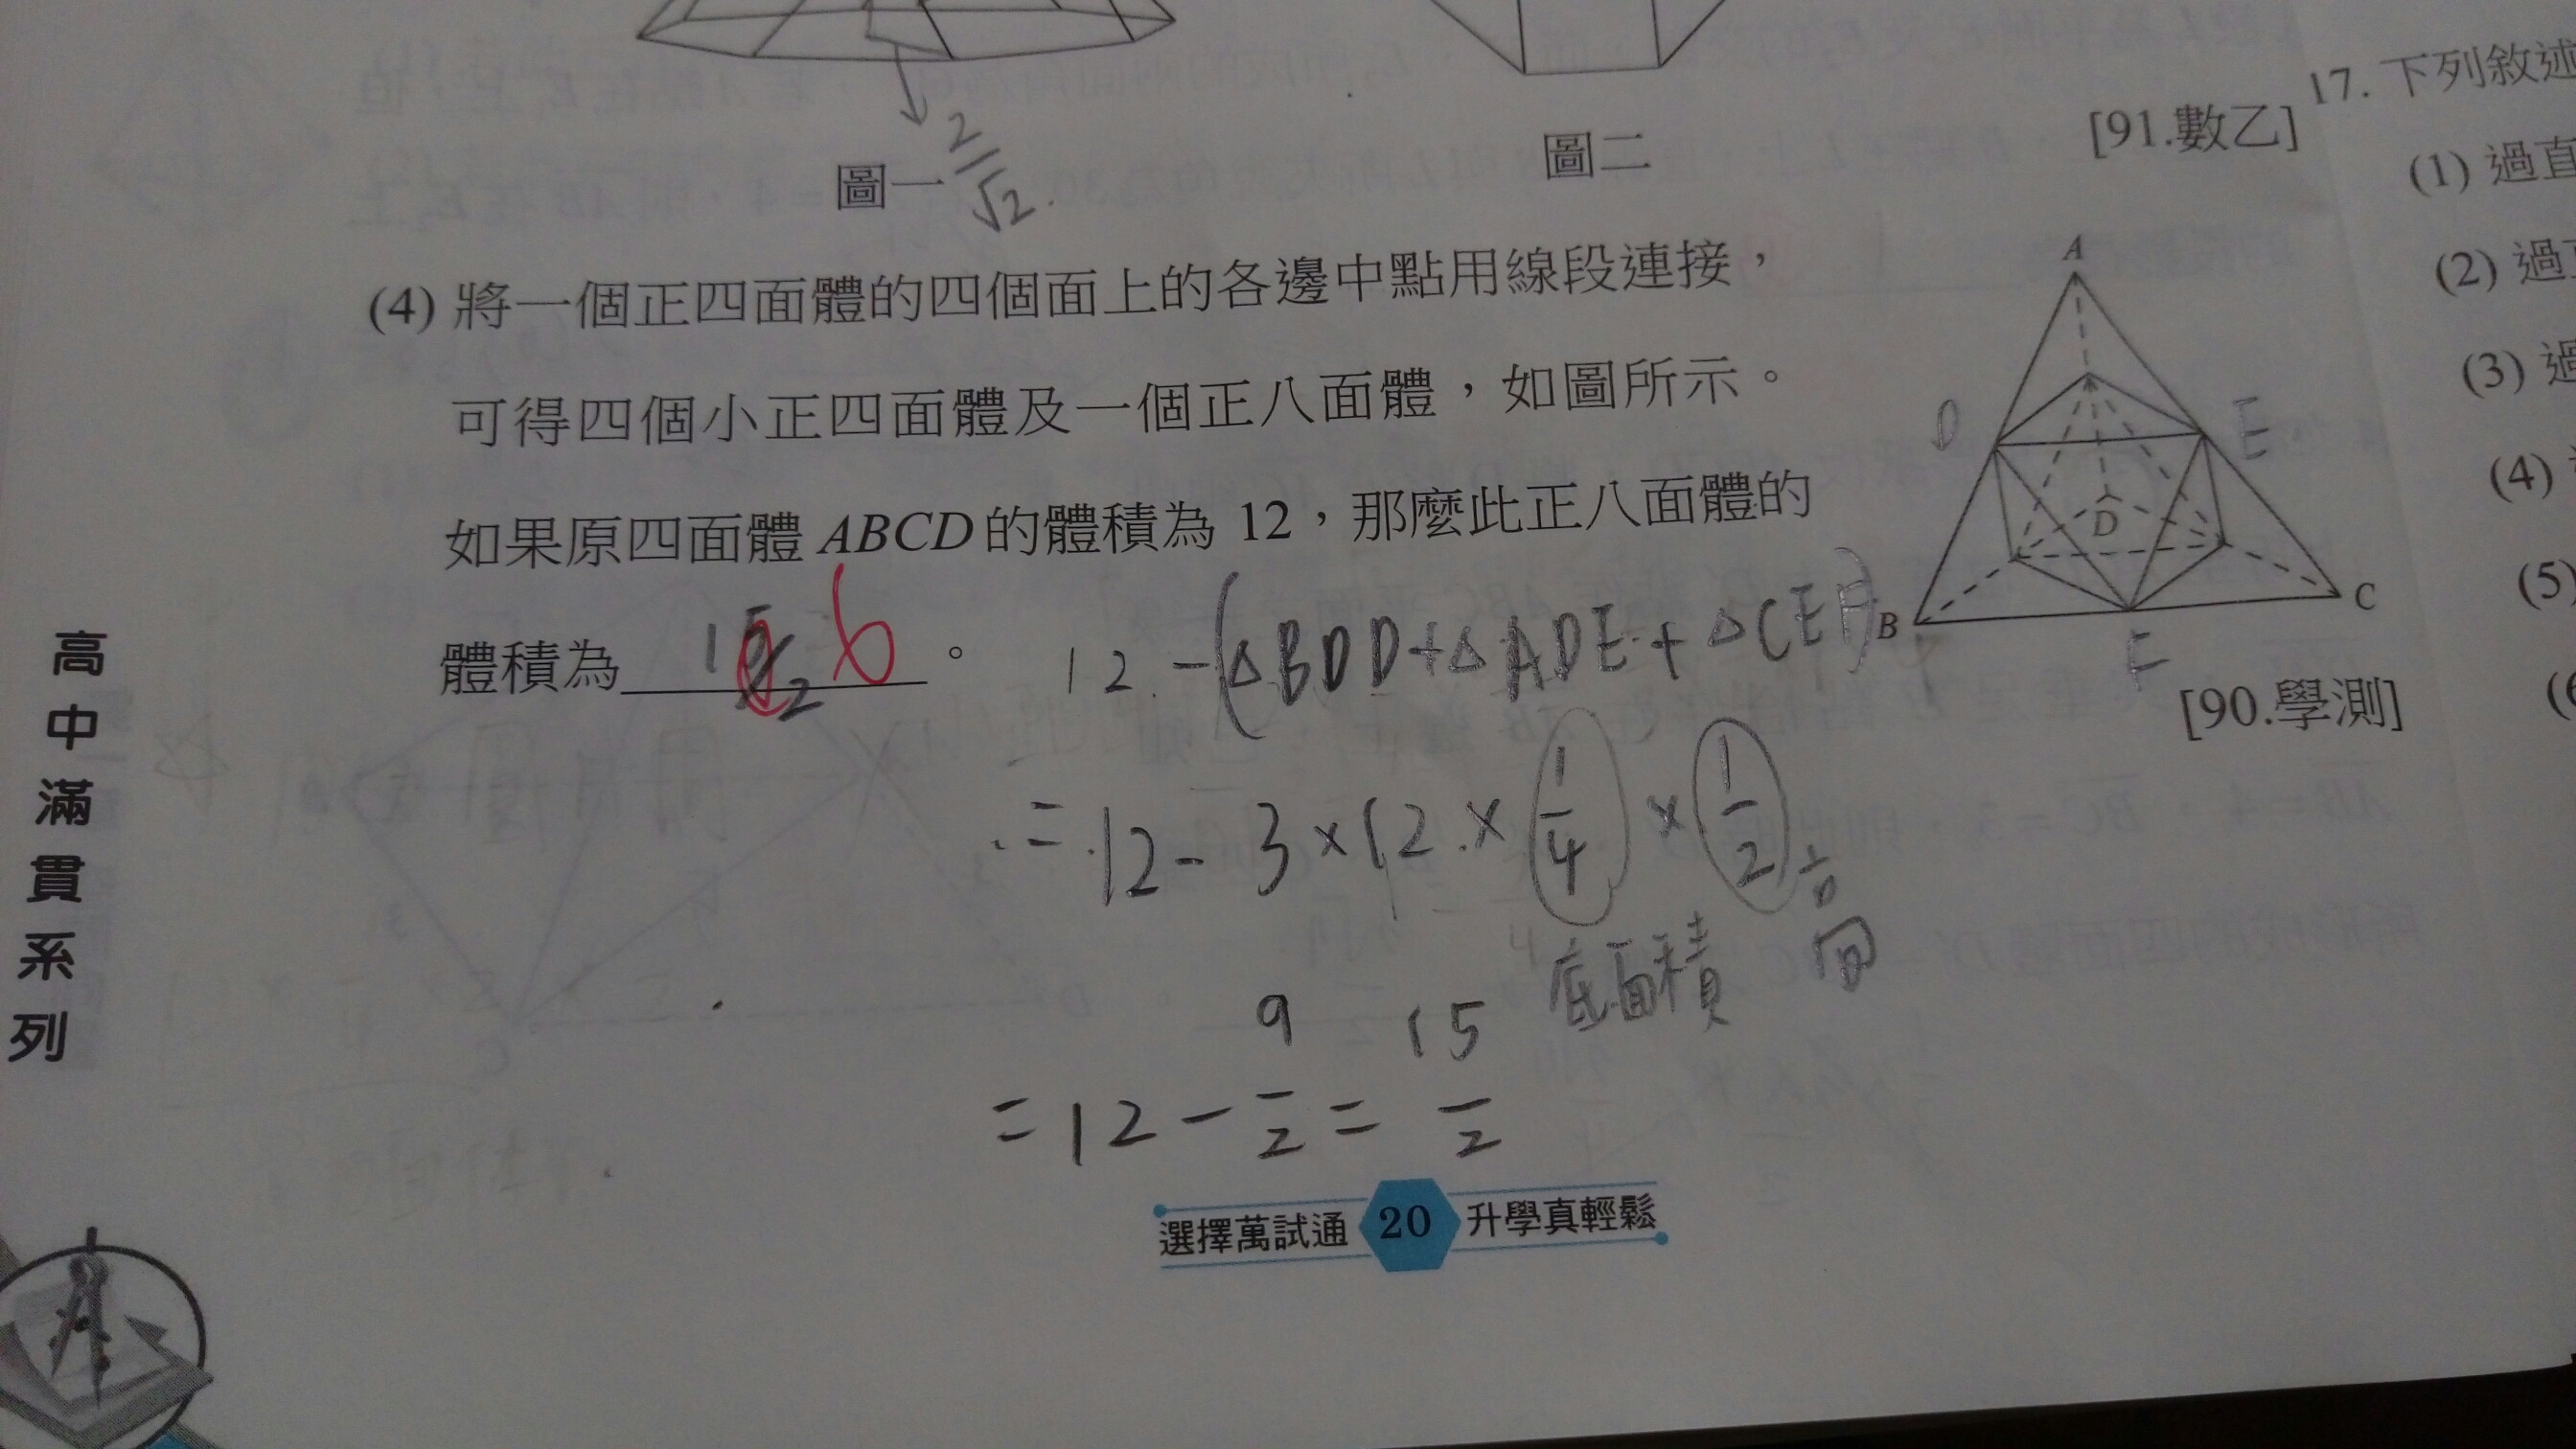 2/√2
圖一
圖二
[91.數乙]
17. 下列敘述
(1) 過直
(2) 過
(3) 過
(4)
(5)
(4) 將一個正四面體的四個面上的各邊中點用線段連接，
可得四個小正四面體及一個正八面體，如圖所示。
如果原四面體 ABCD 的體積為 12，那麼此正八面體的
體積為 15/2 6 。
A
D
E
D
B
F
C
[90.學測]
12 - (△BDD + △ADE + △CEF)
= 12 - 3 × 12 × 1/4 × 1/2
底面積 高
= 12 - 9/2 = 15/2
高中滿貫系列
選擇萬試通 20 升學真輕鬆